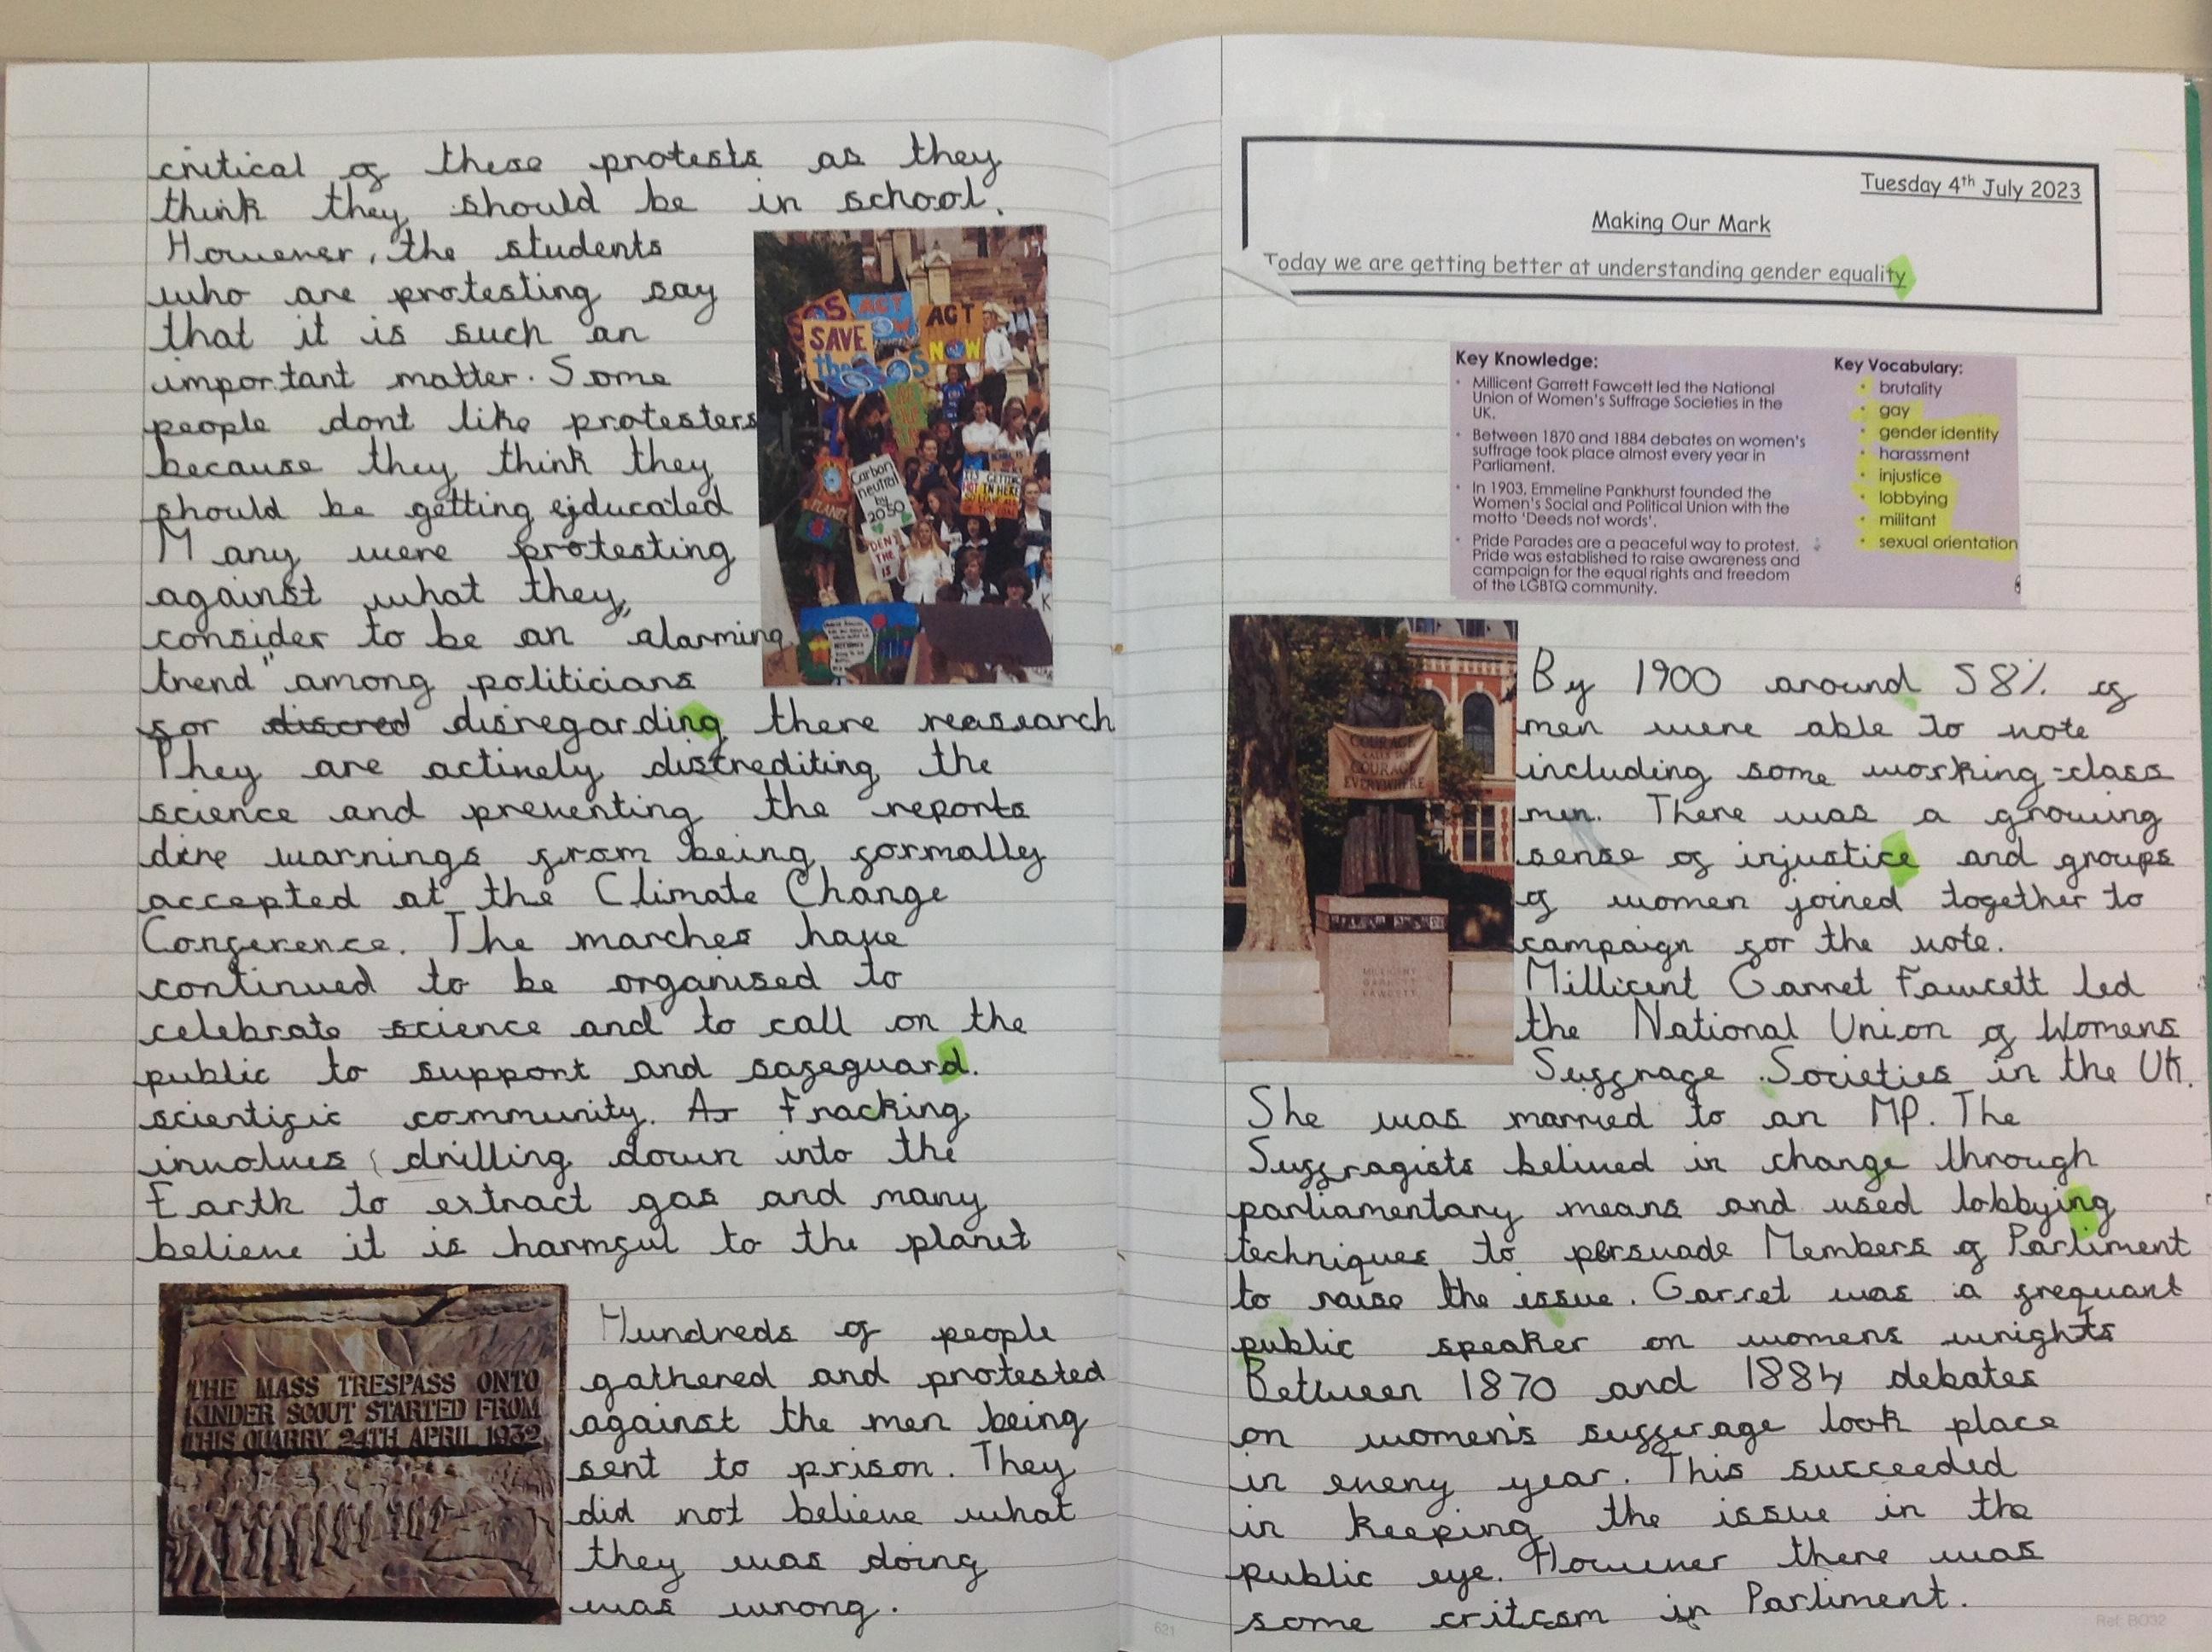 critical of these protests as they
think they should be in school.
However, the students
who are protesting say
that it is such an
important matter. Some
people dont like protesters
because they think they
should be getting ejducated
Many were protesting
against what they
consider to be an "alarming
trend" among politicians
for discred disregarding there reasearch
They are actively distrediting the
science and preventing the reports
dire warnings from being formally
accepted at the Climate Change
Conference. The marches have
continued to be organised to
celebrate science and to call on the
public to support and safeguard.
scientific community. As Fracking
involves drilling down into the
Earth to extract gas and many
believe it is harmful to the planet
SOS
ACT
NOW
SAVE
the
ACT
NOW
Carbon
neutral
by
2030
PLANET
IT'S GETTING
HOT IN HERE
DENY
THE
IS
THE MASS TRESPASS ONTO
KINDER SCOUT STARTED FROM
THIS QUARRY 24TH APRIL 1932
Hundreds of people
gathered and protested
against the men being
sent to prison. They
did not believe what
they was doing
was wrong.
621
Tuesday 4th July 2023
Making Our Mark
Today we are getting better at understanding gender equality
Key Knowledge:
• Millicent Garrett Fawcett led the National
Union of Women's Suffrage Societies in the
UK.
• Between 1870 and 1884 debates on women's
suffrage took place almost every year in
Parliament.
• In 1903, Emmeline Pankhurst founded the
Women's Social and Political Union with the
motto 'Deeds not words'.
• Pride Parades are a peaceful way to protest.
Pride was established to raise awareness and
campaign for the equal rights and freedom
of the LGBTQ community.
Key Vocabulary:
• brutality
• gay
• gender identity
• harassment
• injustice
• lobbying
• militant
• sexual orientation
COURAGE
CALLS TO
COURAGE
EVERYWHERE
MILLICENT
GARRETT
FAWCETT
By 1900 around 58% of
men were able to vote
including some working-class
men. There was a growing
sense of injustice and groups
of women joined together to
campaign for the vote.
Millicent Garret Fawcett led
the National Union of Womens
Suffrage Societies in the UK.
She was married to an MP. The
Suffragists belived in change through
parliamentary means and used lobbying
techniques to persuade Members of Parliment
to raise the issue. Garret was a frequant
public speaker on womens wrights
Between 1870 and 1884 debates
on women's suffurage look place
in every year. This succeeded
in keeping the issue in the
public eye. However there was
some critcsm in Parliment.
Ref: BO32